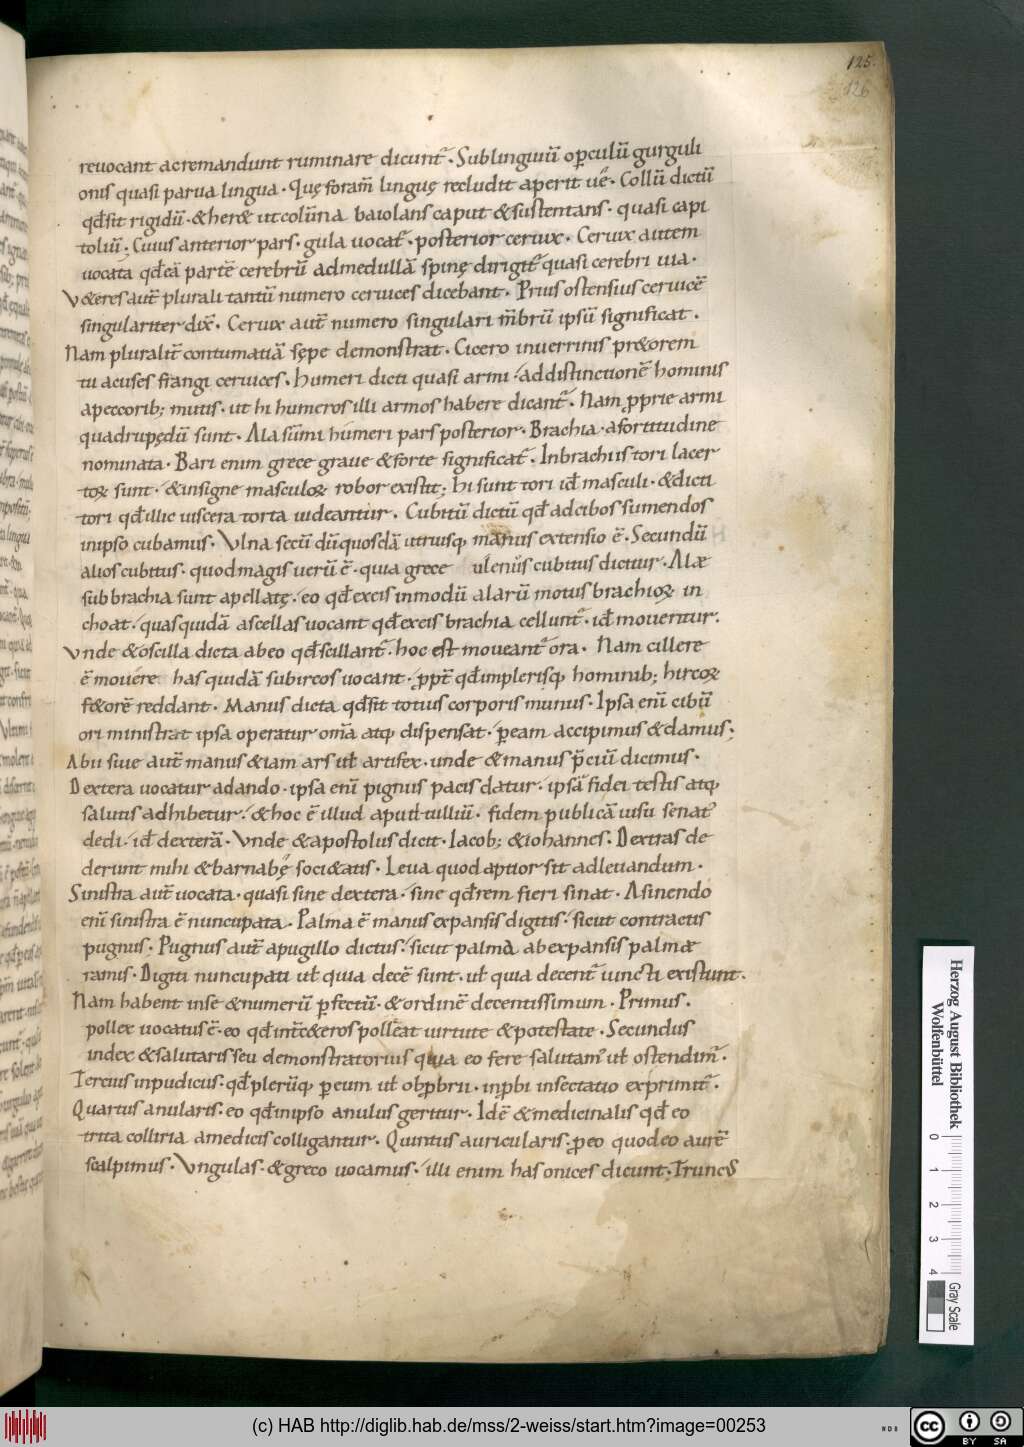 125.
126
reuocant ac remandunt ruminare dicunt̃. Sublinguiũ oꝑculũ gurguli
onis quasi parua lingua. Quę foram̃ linguę recludit aperit uẽ. Collũ dictũ
qđ sit rigidũ. & her& ut colũna baiolans caput & sustentans. quasi capi
toliũ; Cuius anterior pars. gula uocat̃. posterior ceruix. Ceruix autem
uocata qđ eã partẽ cerebrũ ad medullã spinę dirigit̃ quasi cerebri uia.
V&eres aut̃ plurali tantũ numero ceruices dicebant. Prius ostensius ceruicẽ
singulariter dix̃. Ceruix aut̃ numero singulari m̃brũ ipsũ significat.
Nam pluralit̃ contumatiã sępe demonstrat. Cicero in uerrinis pr&orem
tu acuses frangi ceruices. Humeri dicti quasi armi. ad distinctionẽ hominis
a peccorib; mutis. ut hi humeros illi armos habere dicant̃. Nam ꝓprie armi
quadrupędũ sunt. Ala sũmi humeri pars posterior. Brachia. a fortitudine
nominata. Bari enim grece graue & forte significat̃. In brachiis tori lacer
toꝝ sunt. & insigne masculoꝝ robor existit; hi sunt tori iđ masculi. & dicti
tori qđ illic uiscera torta uideantur. Cubitũ dictũ qđ ad cibos sumendos
in ipso cubamus. Vlna secũdũ quosdã utriusq; manus extensio ẽ. Secundũ
alios cubitus. quod magis uerũ ẽ. quia grece ulenus cubitus dicitur. Alæ
sub brachia sunt apellatę. eo qđ ex eis in modũ alarũ motus brachioꝝ in
choat. quas quidã ascellas uocant qđ ex eis brachia cellunt̃. iđ mouentur.
Vnde & oscilla dicta ab eo qđ scillant̃. hoc est moueant̃ ora. Nam cillere
ẽ mouere has quidã subircos uocant. ꝓpt̃ qđ in plerisq; hominib; hircoꝝ
f&orẽ reddant. Manus dicta qđ sit totius corporis munus. Ipsa enĩ cibũ
ori ministrat ipsa operatur om̃a atq; dispensat. ꝑ eam accipimus & damus;
Abu siue aut̃ manus etiam ars ut̃ artifex. unde & manus p̃ciũ dicimus.
Dextera uocatur a dando. ipsa enĩ pignus pacis datur. ipsa fidei testis atq;
salutis adhibetur. & hoc ẽ illud aput tulliũ. fidem publicã iusu senat᾽
dedi. iđ dexterã. Vnde & apostolus dicit. Iacob; & iohannes. Dextras de
derunt mihi & barnabę soci&atis. Leua quod aptior sit ad leuandum.
Sinistra aut̃ uocata. quasi sine dextera. siue qđ rem fieri sinat. A sinendo
enĩ sinistra ẽ nuncupata. Palma ẽ manus expansis digitis. sicut contractis
pugnus. Pugnus aut̃ a pugillo dictus. sicut palma ab expansis palmæ
ramis. Digiti nuncupati uł quia decẽ sunt. uł quia decent̃ iuncti existunt.
Nam habent in se & numerũ ꝑfectũ. & ordinẽ decentissimum. Primus.
pollex uocatus ẽ. eo qđ int̃ c&eros polleat uirtute & potestate. Secundus
index & salutaris seu demonstratorius quia eo fere salutam᾽ uł ostendim᾽.
Tercius inpudicus. qđ plerũq; ꝑ eum uł obꝓbrii. inꝓbi insectatio exprimit̃.
Quartus anularis. eo qđ in ipso anulus geritur. Idẽ & medicinalis qđ eo
trita colliria a medicis colligantur. Quintus auricularis. ꝓ eo quod eo aurẽ
scalpimus. Vngulas. & greco uocamus. illi enim has onices dicunt. Truncus
Herzog August Bibliothek
Wolfenbüttel
0 1 2 3 4
Gray Scale
(c) HAB http://diglib.hab.de/mss/2-weiss/start.htm?image=00253
cc BY SA